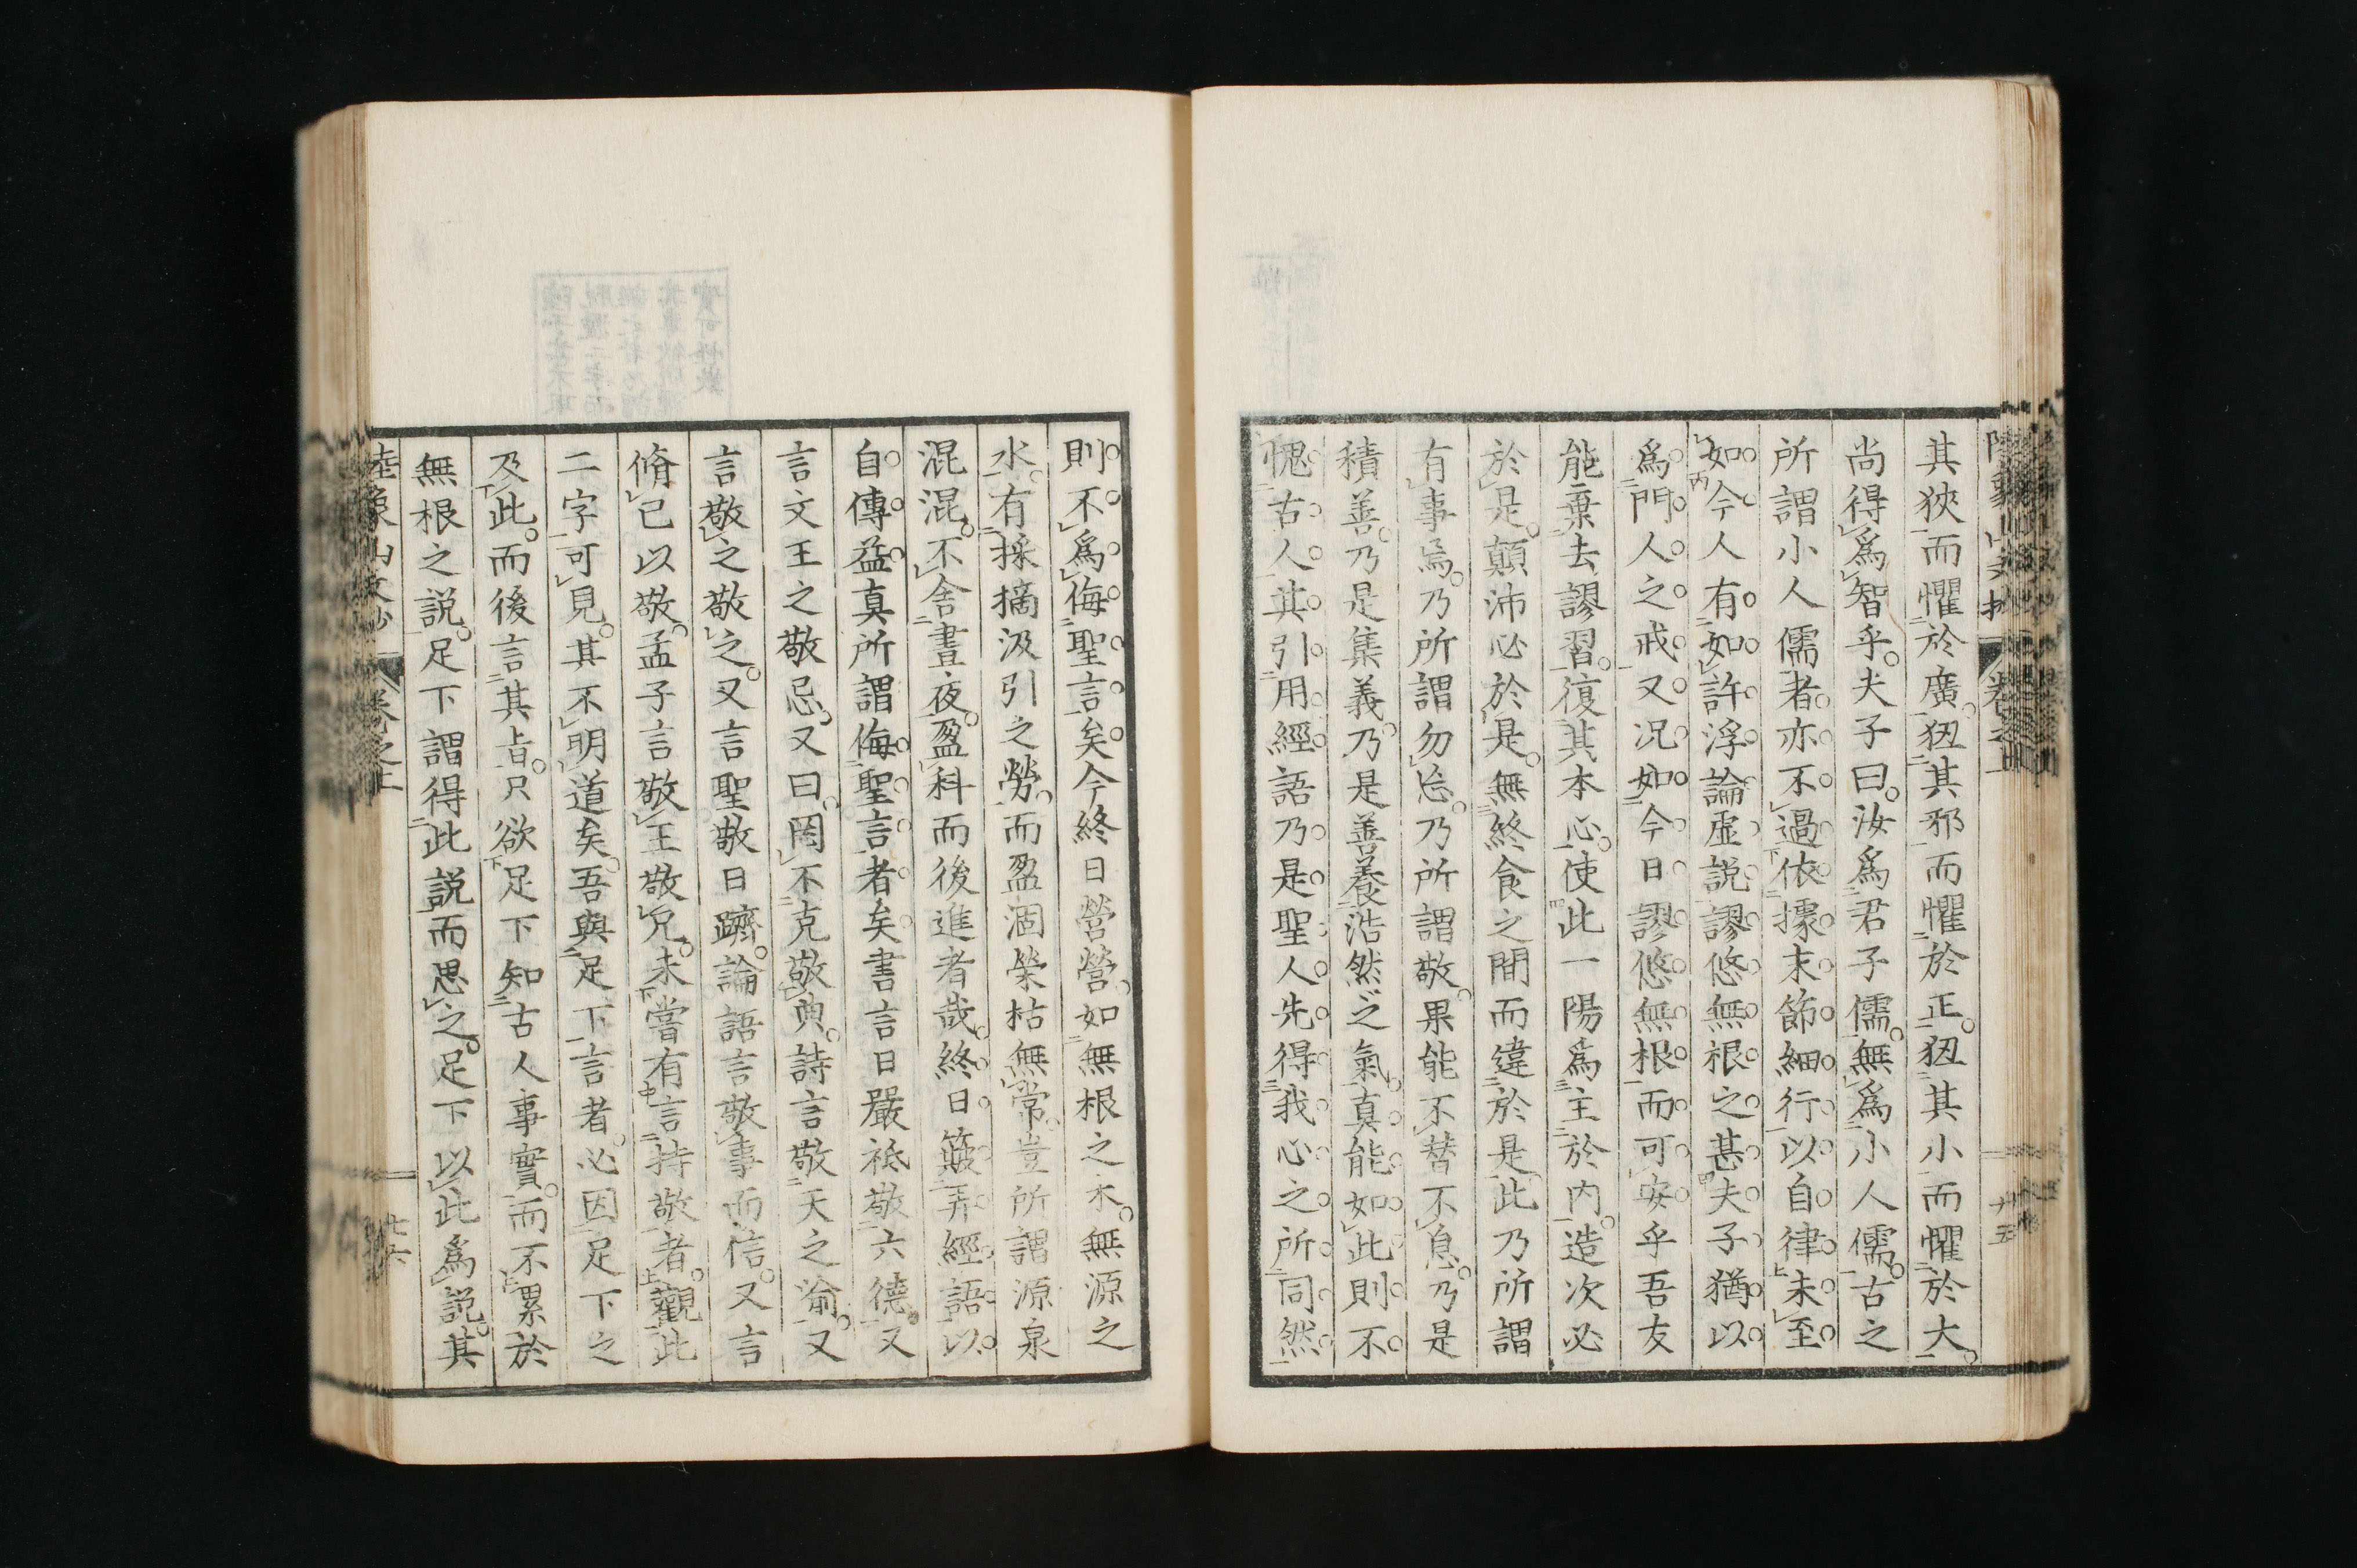 其狹而懼於廣狃其邪而懼於正狃其小而懼於大
尚得爲智乎夫子曰汝爲君子儒無爲小人儒古之
所謂小人儒者亦不過依據末節細行以自律未至
如今人有如許浮論虛説謬悠無根之甚夫子猶以
爲門人之戒又况如今日謬悠無根而可安乎吾友
能棄去謬習復其本心使此一陽爲主於内造次必
於是顛沛必於是無終食之間而違於是此乃所謂
有事焉乃所謂勿忘乃所謂敬果能不替不息乃是
積善乃是集義乃是善養浩然之氣真能如此則不
愧古人其引用經語乃是聖人先得我心之所同然
則不爲侮聖言矣今終日營營如無根之木無源之
水有採摘汲引之勞而盈涸榮枯無常豈所謂源泉
混混不舍晝夜盈科而後進者哉終日簸弄經語以
自傳益真所謂侮聖言者矣書言日嚴祗敬六德又
言文王之敬忌又曰罔不克敬典詩言敬天之渝又
言敬之敬之又言聖敬日躋論語言敬事而信又言
脩已以敬孟子言敬王敬兄未嘗有言持敬者觀此
二字可見其不明道矣吾與足下言者必因足下之
及此而後言其旨只欲足下知古人事實而不累於
無根之説足下謂得此説而思之足下以此爲説其
陸象山文抄 卷之上